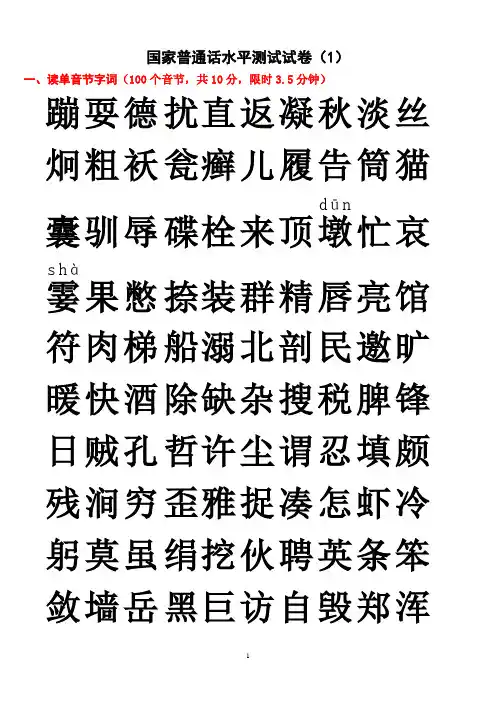 国家普通话水平测试试卷（1）
一、读单音节字词（100个音节，共10分，限时3.5分钟）
蹦耍德扰直返凝秋淡丝
炯粗袄瓮癣儿履告筒猫
dūn
囊驯辱碟栓来顶墩忙哀
shà
霎果憋捺装群精唇亮馆
符肉梯船溺北剖民邀旷
暖快酒除缺杂搜税脾锋
日贼孔哲许尘谓忍填颇
残涧穷歪雅捉凑怎虾冷
躬莫虽绢挖伙聘英条笨
敛墙岳黑巨访自毁郑浑
1